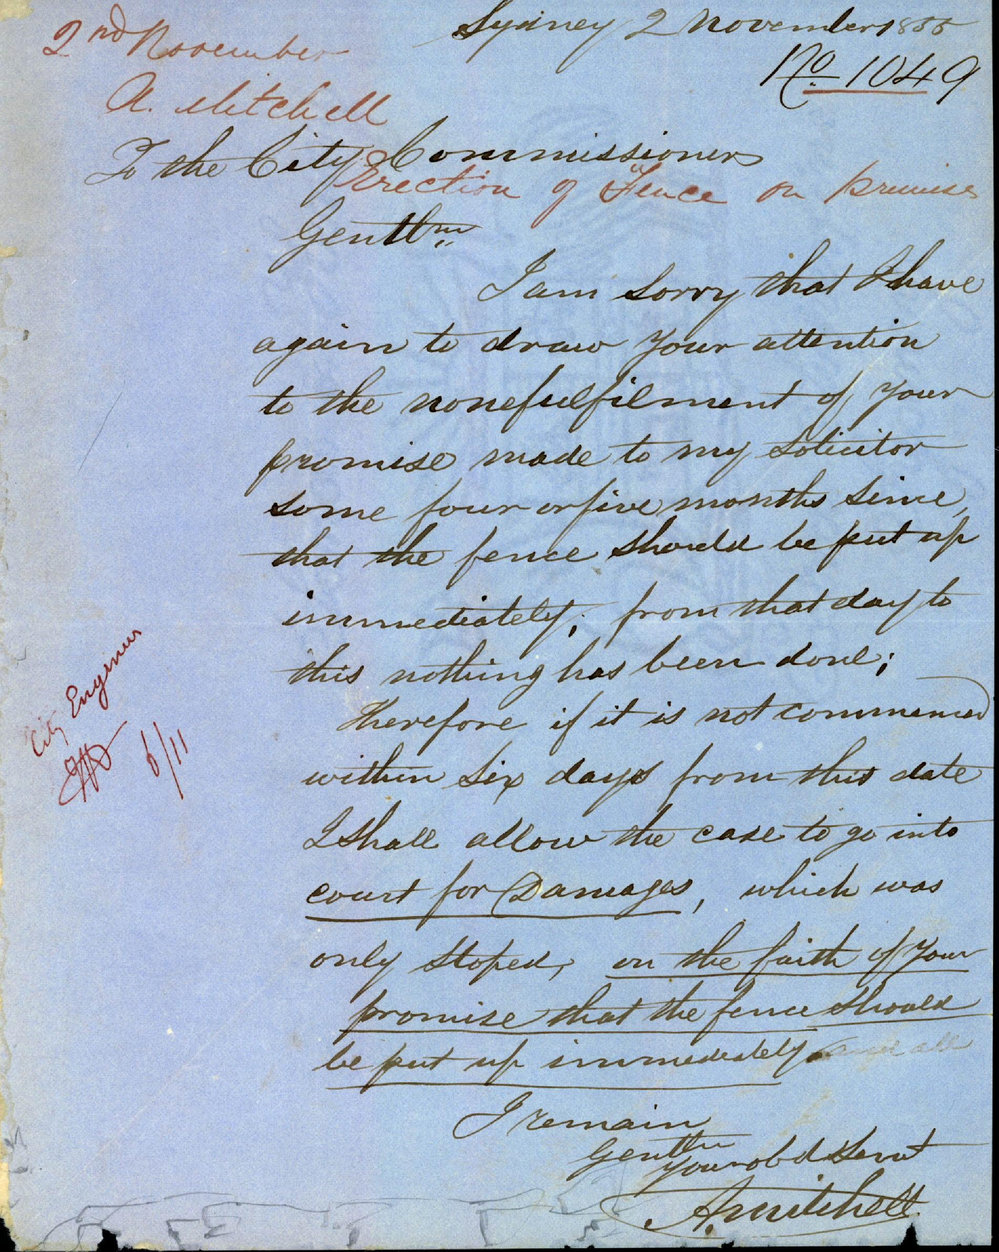 Sydney 2 November 1855
2nd November
No. 1049
A. Mitchell
To the City Commissioners
Erection of Fence on premises
Gentlmn
I am sorry that I have
again to draw your attention
to the nonefulfilment of your
promise made to my Solicitor
some four or five months since,
that the fence should be put up
immediately; from that day to
this nothing has been done;
therefore if it is not commenced
within six days from this date
I shall allow the case to go into
court for Damages, which was
only stoped, on the faith of your
promise that the fence should
be put up immediately
City Engineer
6/11
I remain
Gentlmn
Your obd Servt
A. Mitchell